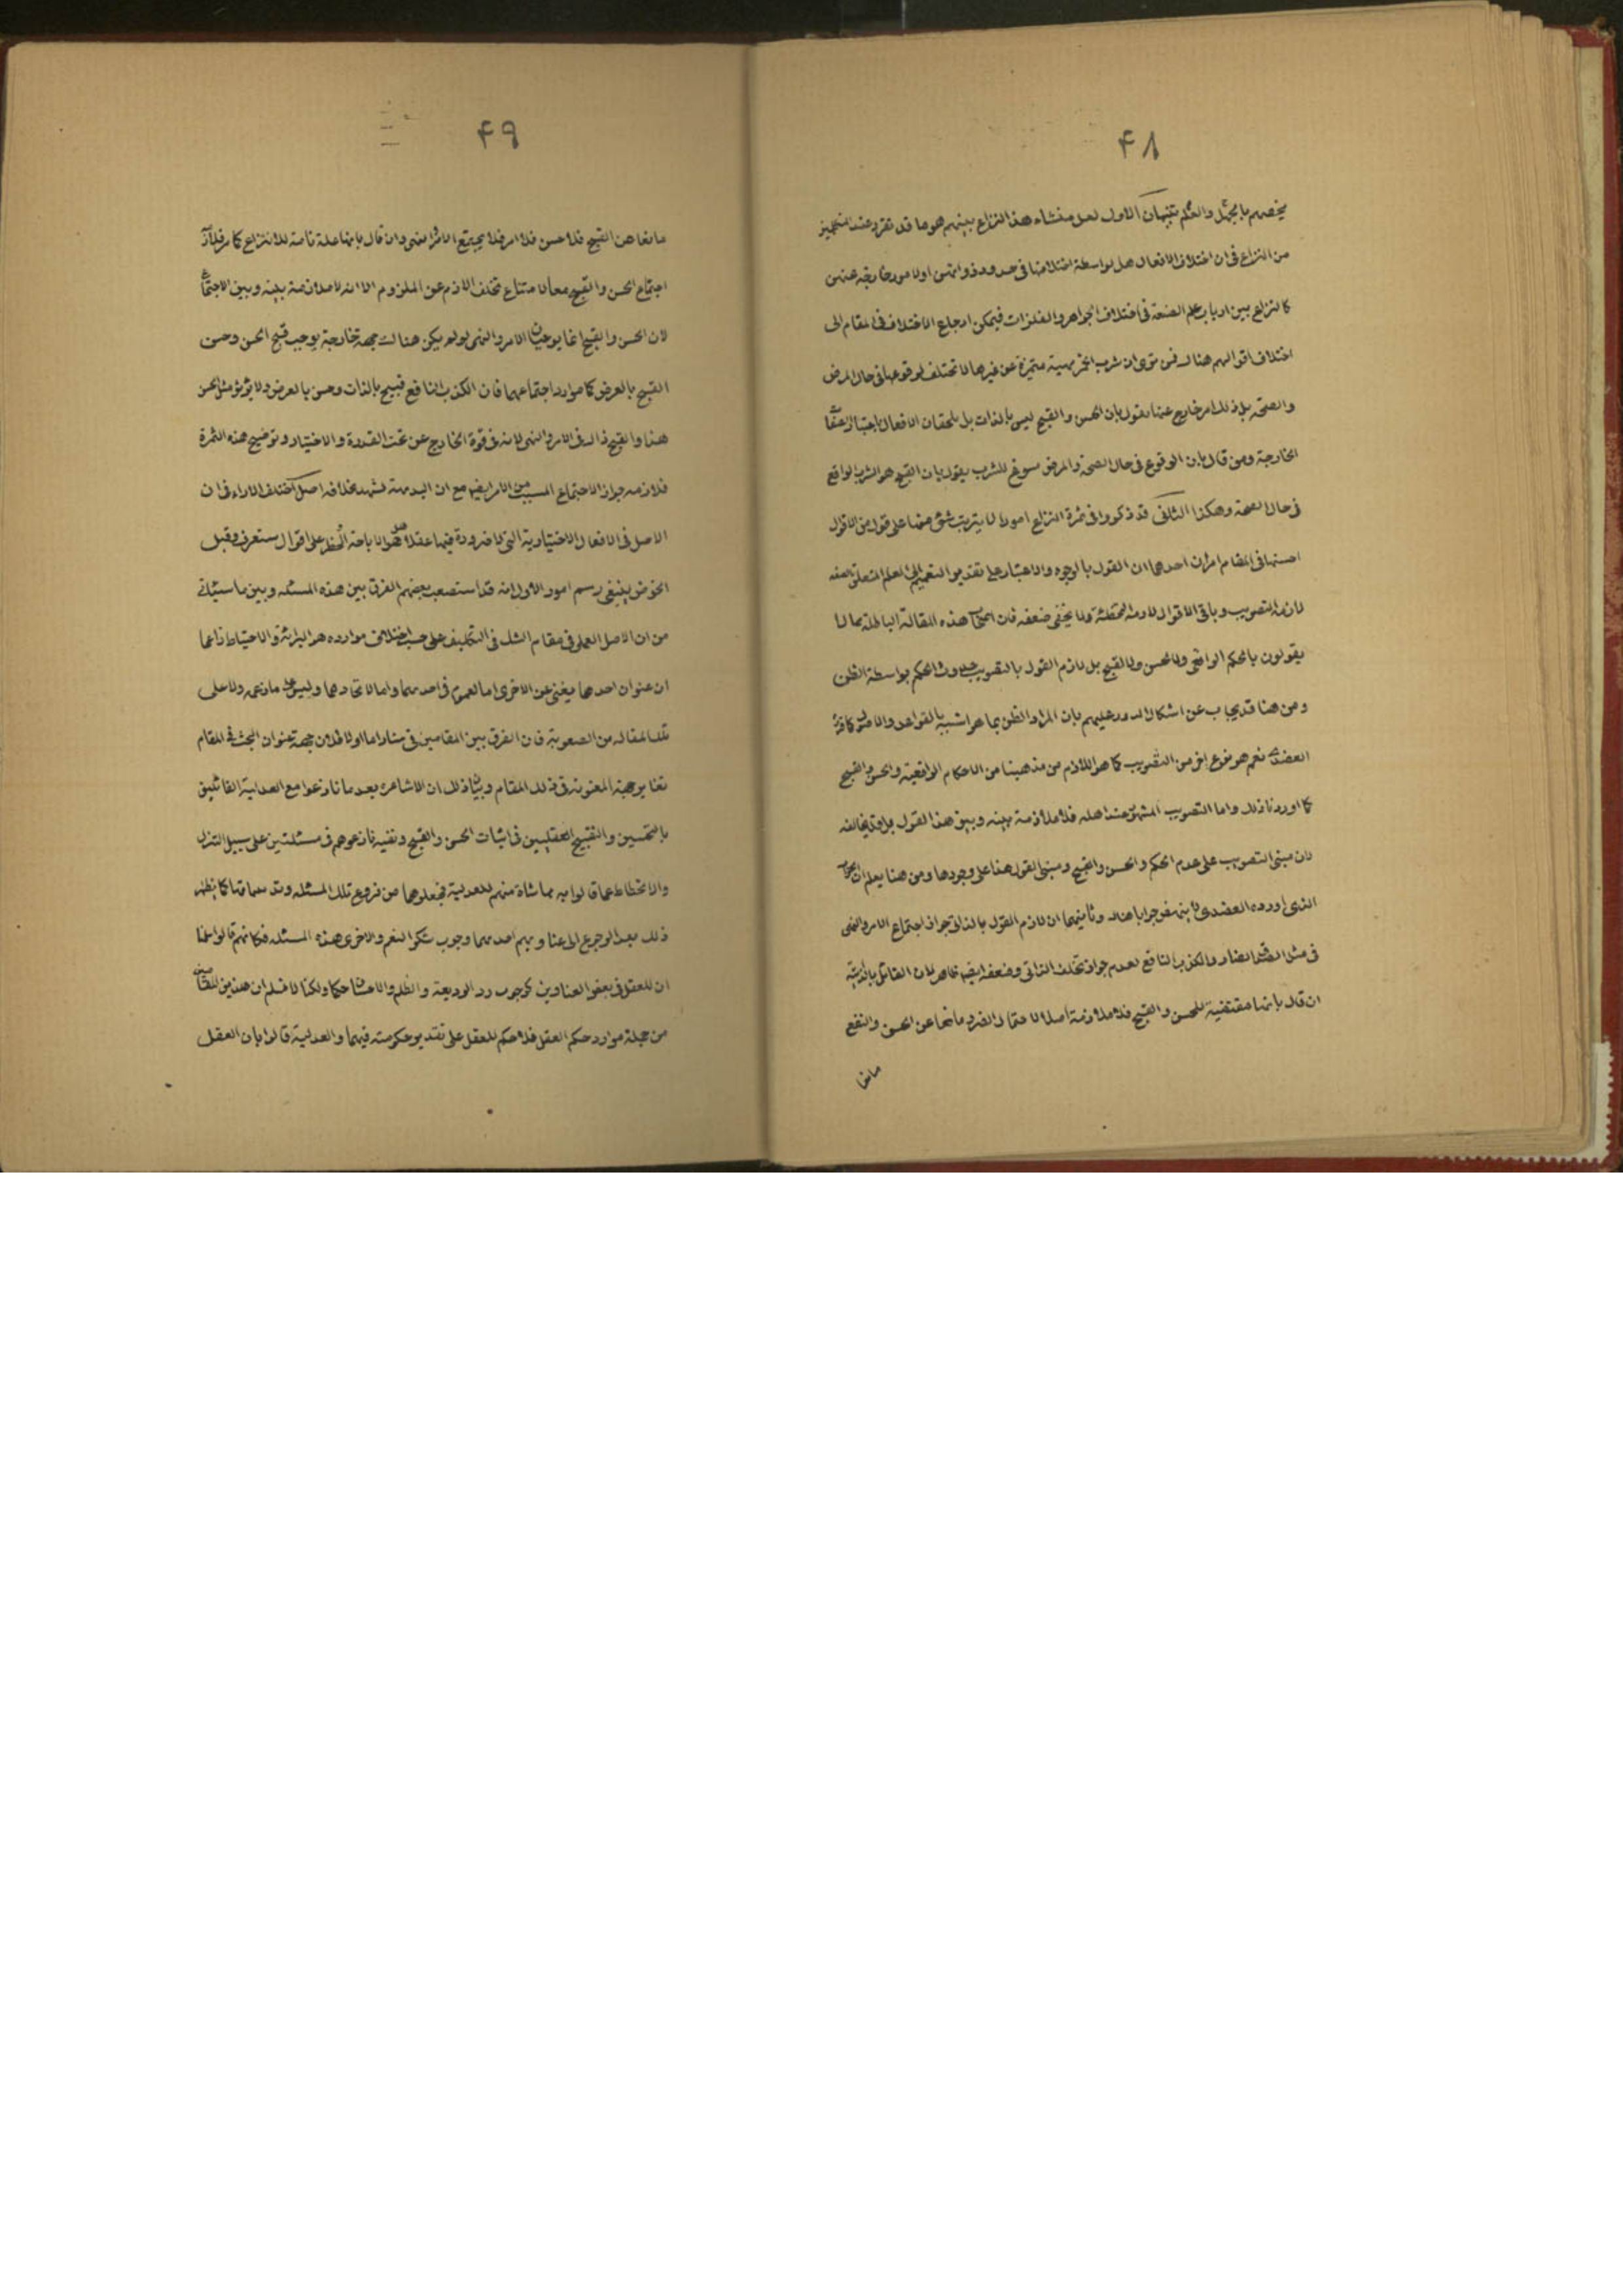 ۴۸
يخصهم بالجهل والعلم تنبيهان الاول لعل منشاء هذا النزاع بينهم هو ما قد تقرر عند
من النزاع فى ان اختلاف الافعال هل بواسطة اختلافها فى حدود ذواتهن او لامور خارجة عنهن
كالنزاع بين ارباب علم الصنعة فى اختلاف الجواهر والفلزات فيمكن ارجاع الاختلاف فى المقام الى
اختلاف اقوالهم هناك فمن يرى ان شرب الخمر مهية متميزة عن غيرها لا تختلف لوقوعها فى حال المرض
والصحة بل ذلك امر خارج عنها يقول بان الحسن والقبح ليس بالذات بل يلحقان الافعال باعتبار
الخارجة ومن قال بان الوقوع فى حال الصحة والمرض منوع للشرب يقول بان القبح هو الشرب الواقع
فى حال الصحة وهكذا الثانى قد ذكروا فى ثمرة النزاع امورا لا يترتب شئ منها على قول من الاقوال
احسنها فى المقام امران احدهما ان القول بالوجوه والاعتبار على تقدير التعميم الى العلم المتعلق
لازمه التصويب وباقى الاقوال لازمه التخطئة ولا يخفى ضعفه فان اصحاب هذه المقالة الباطلة مما لا
يقولون بالحكم الواقعى ولا الحسن ولا القبح بل لازم القول بالتصويب حدوث الحكم بواسطة الظن
ومن هنا قد يجاب عن اشكال الدور عليهم بان المراد الظن بما هو اشبه بالقواعد والاصول كما قرره
العضدى نعم هو نوع اخر من التصويب كما هو اللازم من مذهبنا من الاحكام الواقعية والحسن والقبح
كما اوردنا ذلك واما التصويب المشهور عند اهله فلا ملازمة بينه وبين هذا القول بل قد يخالفه
لان مبنى التصويب على عدم الحكم والحسن والقبح ومبنى القول هذا على وجودها ومن هنا يعلم ان الجواب
الذى اورده العضدى لا ينهض جوابا هناك وثانيهما ان لازم القول بالذاتى جواز اجتماع الامر والنهى
فى مثل الصدق الضار والكذب النافع لعدم جواز تخلف الذاتى وضعفه ايضا ظاهر لان القائل بالذاتية
ان قال بانها مقتضية للحسن والقبح فلا ملازمة اصلا لاحتمال الضرر مانعا عن الحسن والنفع
مانعا
۴۹
مانعا عن القبح فلا حسن فلا امر فلا يجتمع الامر النهى وان قال بانها علة تامة للانتزاع كما
اجتماع الحسن والقبح معا لامتناع تخلف اللازم عن الملزوم الا انه لا ملازمة بينه وبين الاجتماع
لان الحسن والقبح انما يوجبان الامر والنهى لو لم يكن هناك جهة خارجة يوجب قبح الحسن وحسن
القبح بالعرض كما موارد اجتماعهما فان الكذب النافع قبيح بالذات وحسن بالعرض ولا يؤثر مثل الحسن
هذا والقبح ذاك فى الامر والنهى لانه فى قوة الخارج عن تحت القدرة والاختيار وتوضيح هذه الثمرة
فلازمه جواز الاجتماع المسبب من الامر ايضا مع ان البديهة تشهد بخلافه اصل اختلف الاراء فى ان
الاصل فى الافعال الاختيارية التى لا ضرورة فيها عقلا هل هو الاباحة او الحظر على اقوال ستعرف وقبل
الخوض ينبغى رسم امور الاول انه قد استصعب بعضهم الفرق بين هذه المسئلة وبين ما سيئاتى
من ان الاصل العملى فى مقام الشك فى التكليف على حسب اختلاف موارده هو البرائة والاحتياط زاعما
ان عنوان احدهما يغنى عن الاخرى اما لعموم فى احدهما واما لاتحادهما وليس على ما زعمه ولا على
تلك المقالة من الصعوبة فان الفرق بين المقامين فى منار اما اولا فلان جهة عنوان البحث فى المقام
تغاير جهة المعنونة فى ذلك المقام وبيان ذلك ان الاشاعرة بعد ما نازعوا مع العدلية القائلين
بالتحسين والتقبيح العقليين فى اثبات الحسن والقبح ونفيه نازعوهم فى مسئلتين على سبيل التنزل
والانحطاط عما قالوا به مماشاة منهم للعدلية فجعلوهما من فروع تلك المسئلة كما يظهر
ذلك بعد الرجوع الى عناوينهم احدهما وجوب شكر المنعم والاخرى هذه المسئلة فكانهم قالوا سلمنا
ان للعقل فى بعض العناوين كوجوب رد الوديعة والظلم والاحسان حكما ولكنا لا نسلم ان هذين المقامين
من جملة موارد حكم العقل فلا حكم للعقل على تقدير حكومته فيهما والعدلية قالوا بان العقل